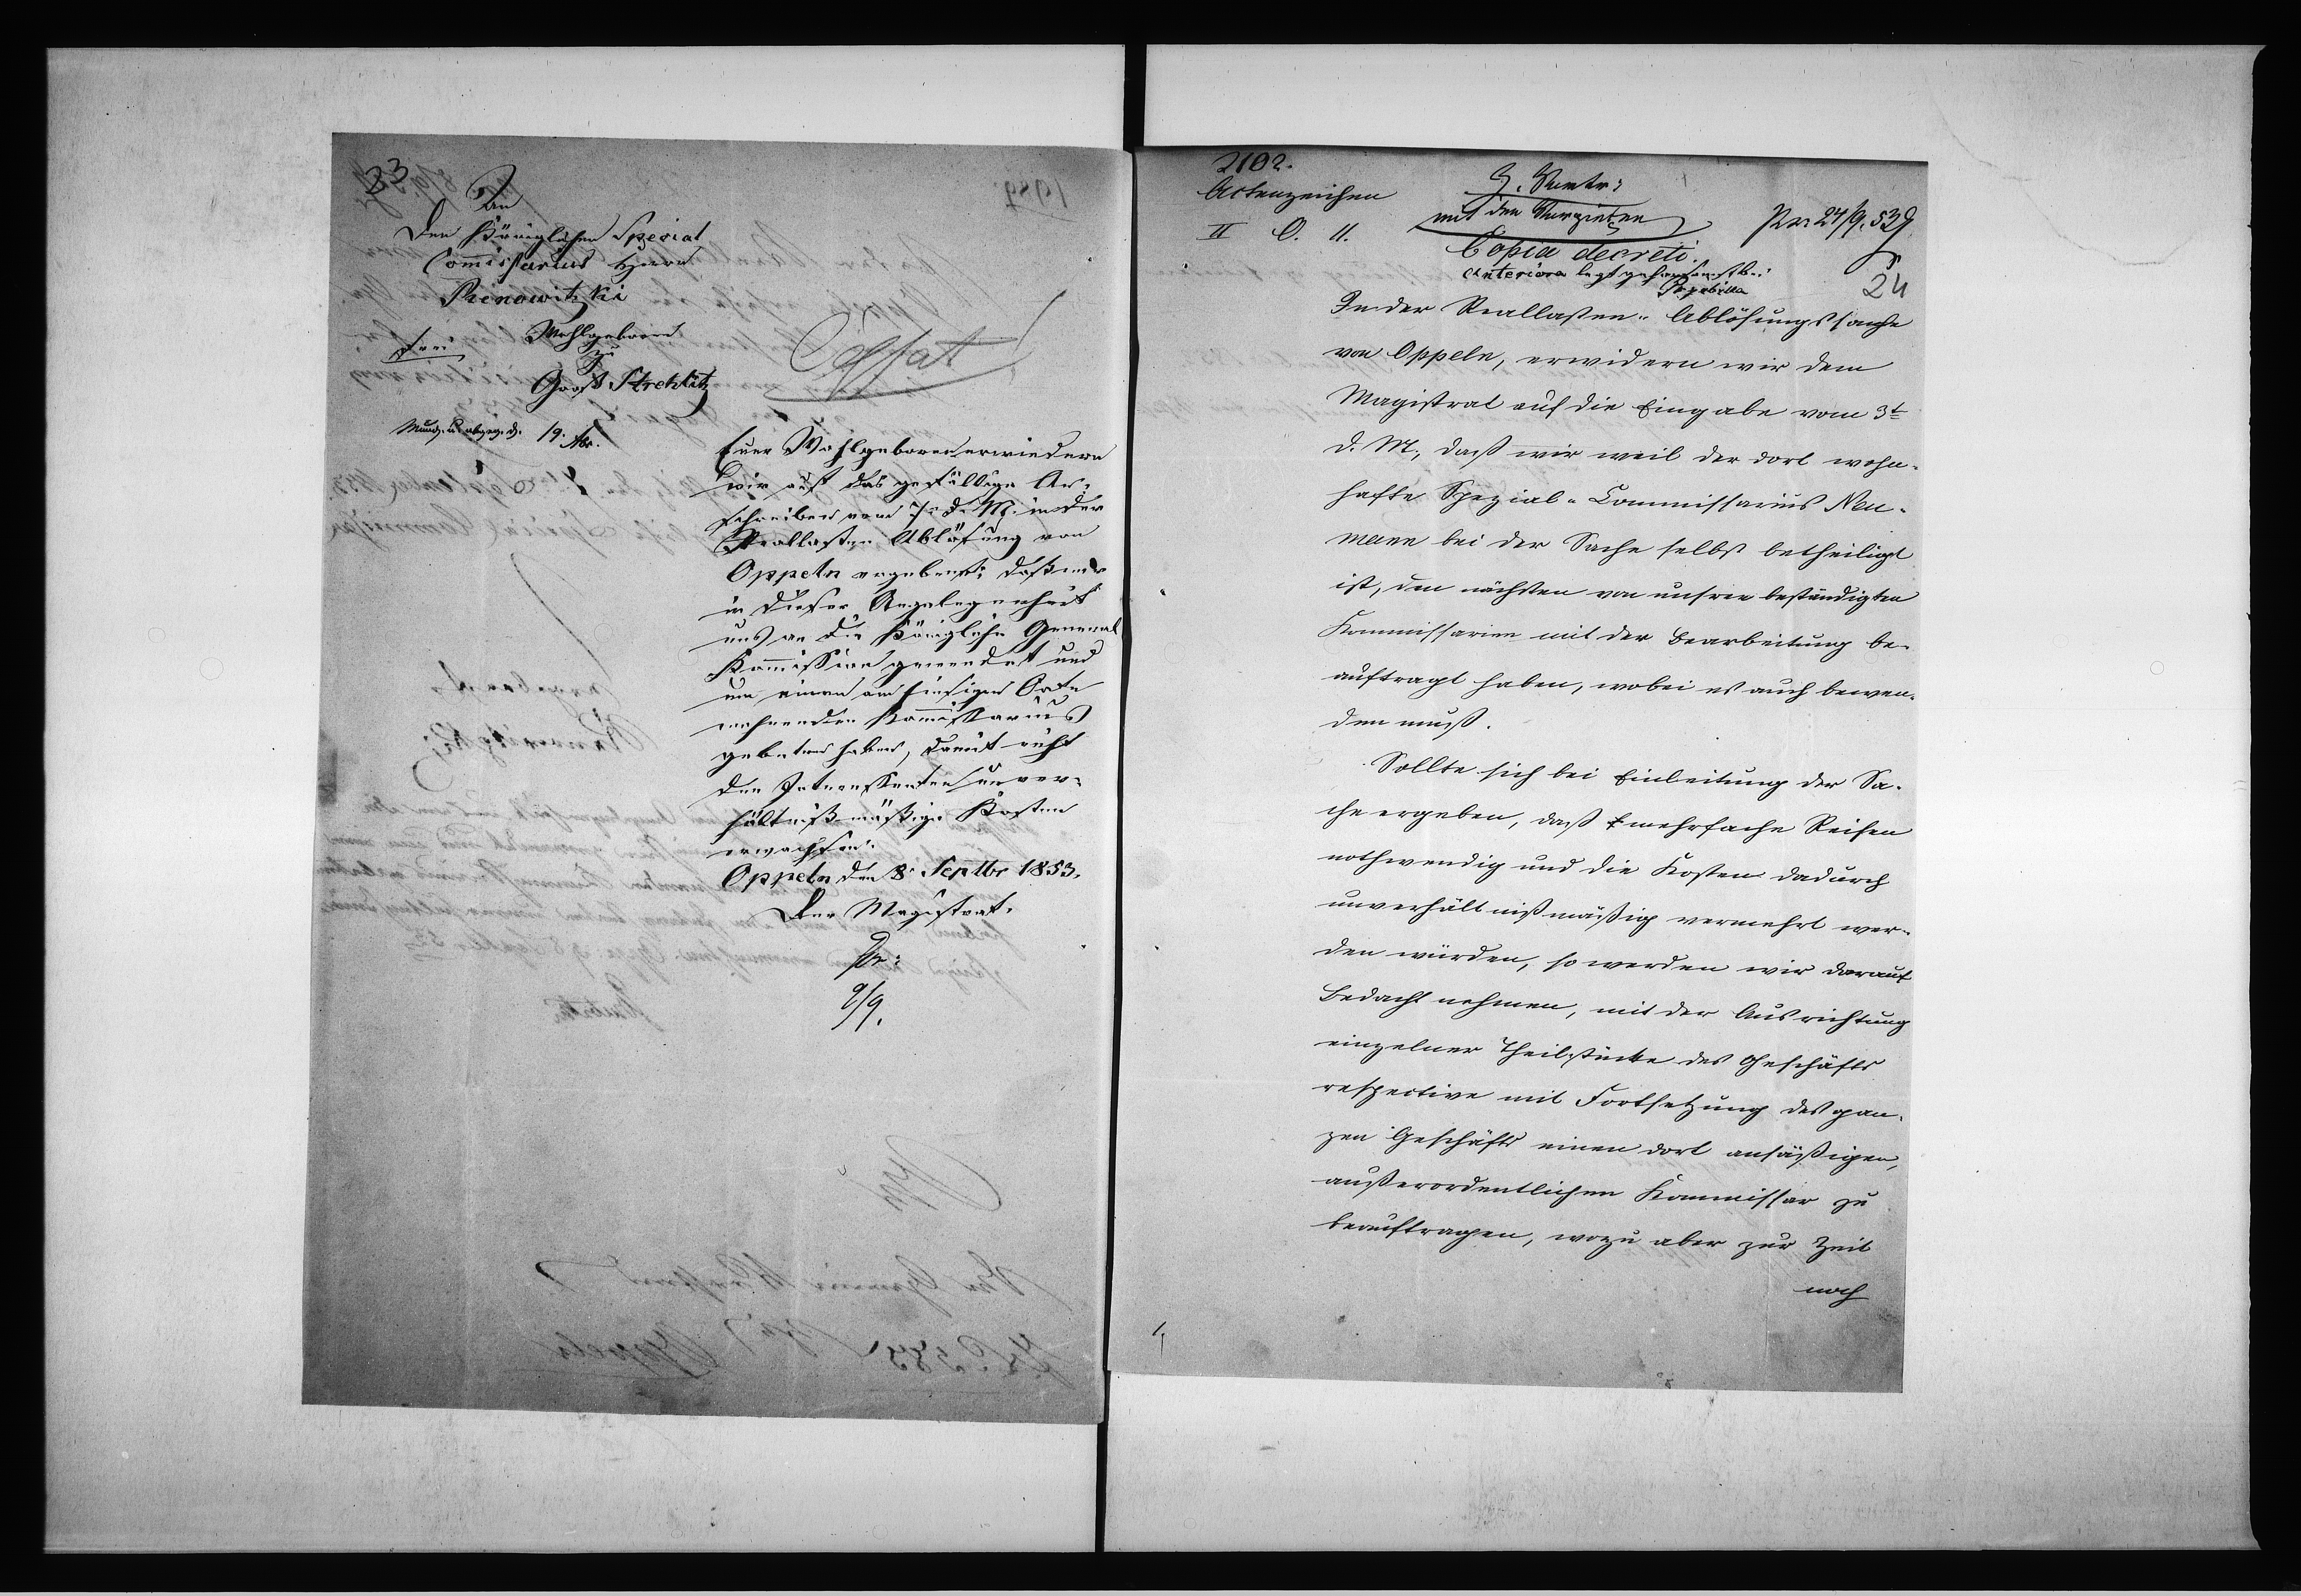 23
An
den Königlichen Spezial
Commissarius Herrn
Renowitzki
Wohlgeboren
frei
zu
Groß Strehlitz
19.
Cessat
Euer Wohlgeboren erwiedern
wir auf das gefällige An-
schreiben vom 7. d. M. in der
Reallasten Ablösung von
Oppeln ergebenst, daß wir
in dieser Angelegenheit
uns an die Königliche General
Kommission gewendet und
um einen am hiesigen Orte
wohnenden Kommissarius
gebeten haben, damit nicht
den Interessenten unver-
hältnißmäßige Kosten
erwachsen.
Oppeln den 8. Septbr 1853.
Der Magistrat.
9/9.
2102.
Actenzeichen
II O. 11.
mit den
pr. 24/9. 53
Copia decreti.
Anteriora
24
In der Reallasten-Ablösungssache
von Oppeln, erwidern wir dem
Magistrat auf die Eingabe vom 3t
d. M., daß wir weil der dort wohn-
hafte Spezial-Commissarius Neu-
mann bei der Sache selbst betheiligt
ist, den nächsten von unseren beständigten
Kommissarien mit der Bearbeitung be-
auftragt haben, wobei es auch bewen-
den muß.
Sollte sich bei Einleitung der Sa-
che ergeben, daß mehrfache Reisen
nothwendig und die Kosten dadurch
unverhältnißmäßig vermehrt wer-
den würden, so werden wir darauf
Bedacht nehmen, mit der Ausrichtung
einzelner Theilstücke des Geschäfts
respective mit Fortsetzung des gan-
zen Geschäfts einen dort ansäßigen,
außerordentlichen Kommissar zu
beauftragen, wozu aber zur Zeit
noch